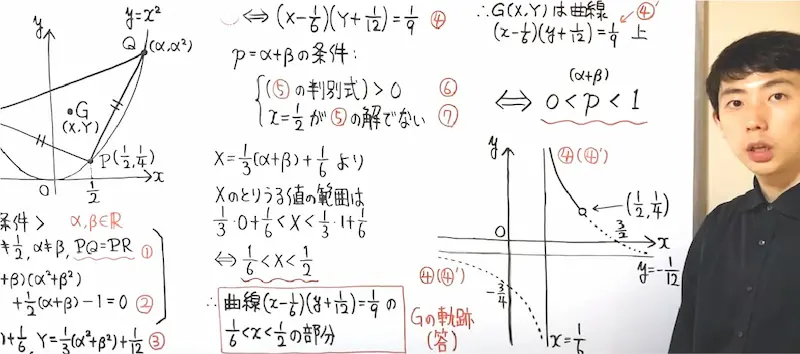 y=x²
y
Q
(α,α²)
G
(X,Y)
P(1/2,1/4)
O
1/2
x
条件> α,β∈ℝ
≠1/2, α≠β, PQ=PR ①
+β)(α²+β²)
+1/2(α+β)-1=0 ②
)+1/6, Y=1/3(α²+β²)+1/12 ③
⇔(X-1/6)(Y+1/12)=1/9 ④
p=α+βの条件:
(⑤の判別式)>0 ⑥
x=1/2が⑤の解でない ⑦
X=1/3(α+β)+1/6 より
Xのとりうる値の範囲は
1/3・0+1/6<X<1/3・1+1/6
⇔ 1/6<X<1/2
∴ 曲線(x-1/6)(y+1/12)=1/9の
1/6<x<1/2の部分
Gの軌跡
(答)
∴G(X,Y)は曲線 ④'
(x-1/6)(y+1/12)=1/9 上
(α+β)
⇔ 0<p<1
y
④(④')
(1/2,1/4)
O
3/2
x
y=-1/12
④(④')
-3/4
x=1/6